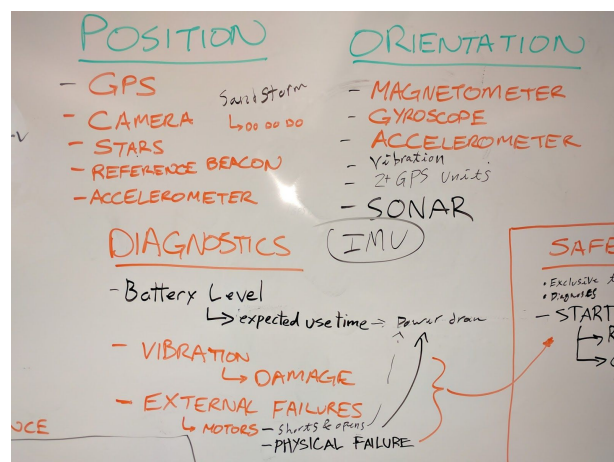 POSITION
- GPS
- CAMERA
Sand Storm
- STARS
- REFERENCE BEACON
- ACCELEROMETER
ORIENTATION
- MAGNETOMETER
- GYROSCOPE
- ACCELEROMETER
- Vibration
- 2+ GPS Units
- SONAR
IMU
DIAGNOSTICS
- Battery Level
expected use time → Power drain
- VIBRATION
DAMAGE
- EXTERNAL FAILURES
MOTORS - shorts & opens
- PHYSICAL FAILURE
SAFE
• Exclusive
• Diagnoses
- START
NCE